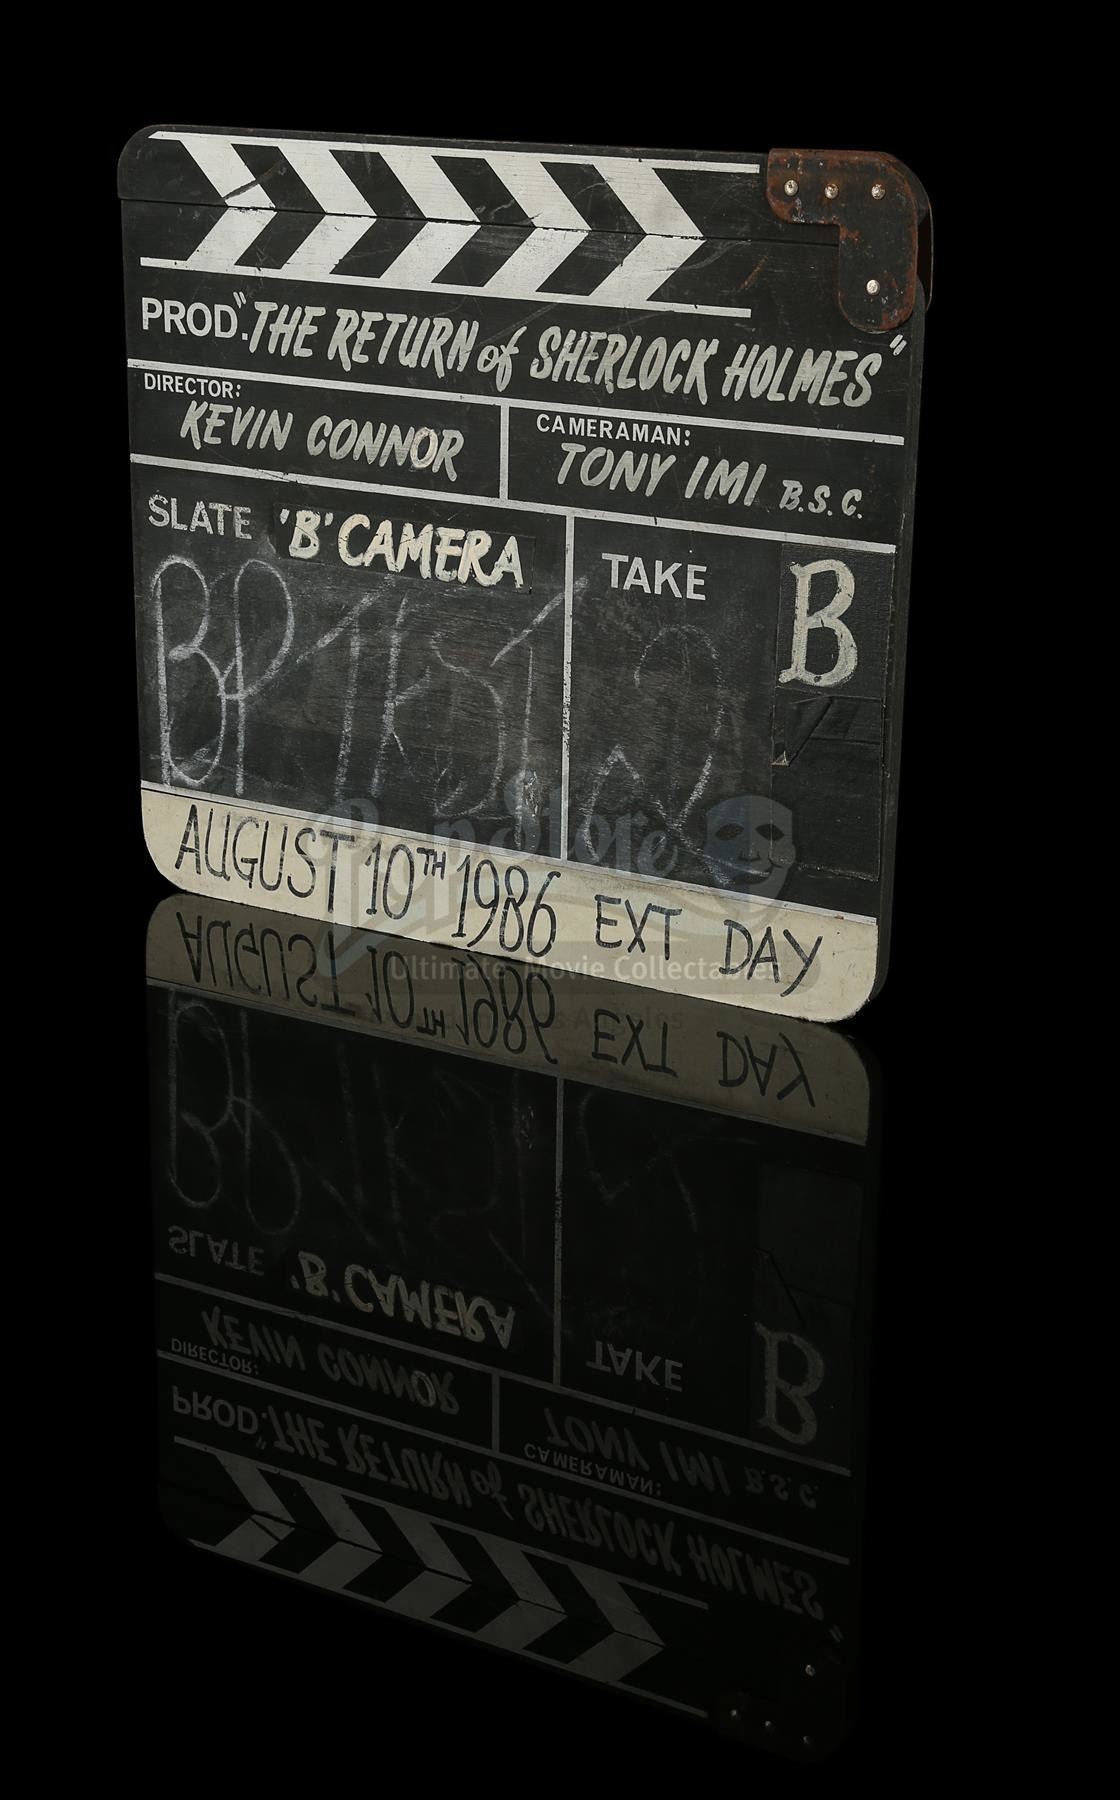 PROD. "THE RETURN of SHERLOCK HOLMES"
DIRECTOR:
KEVIN CONNOR
CAMERAMAN:
TONY IMI B.S.C.
SLATE 'B' CAMERA
TAKE
B
BP TEST
2
AUGUST 10TH 1986 EXT DAY
PropStore
Ultimate Movie Collectables